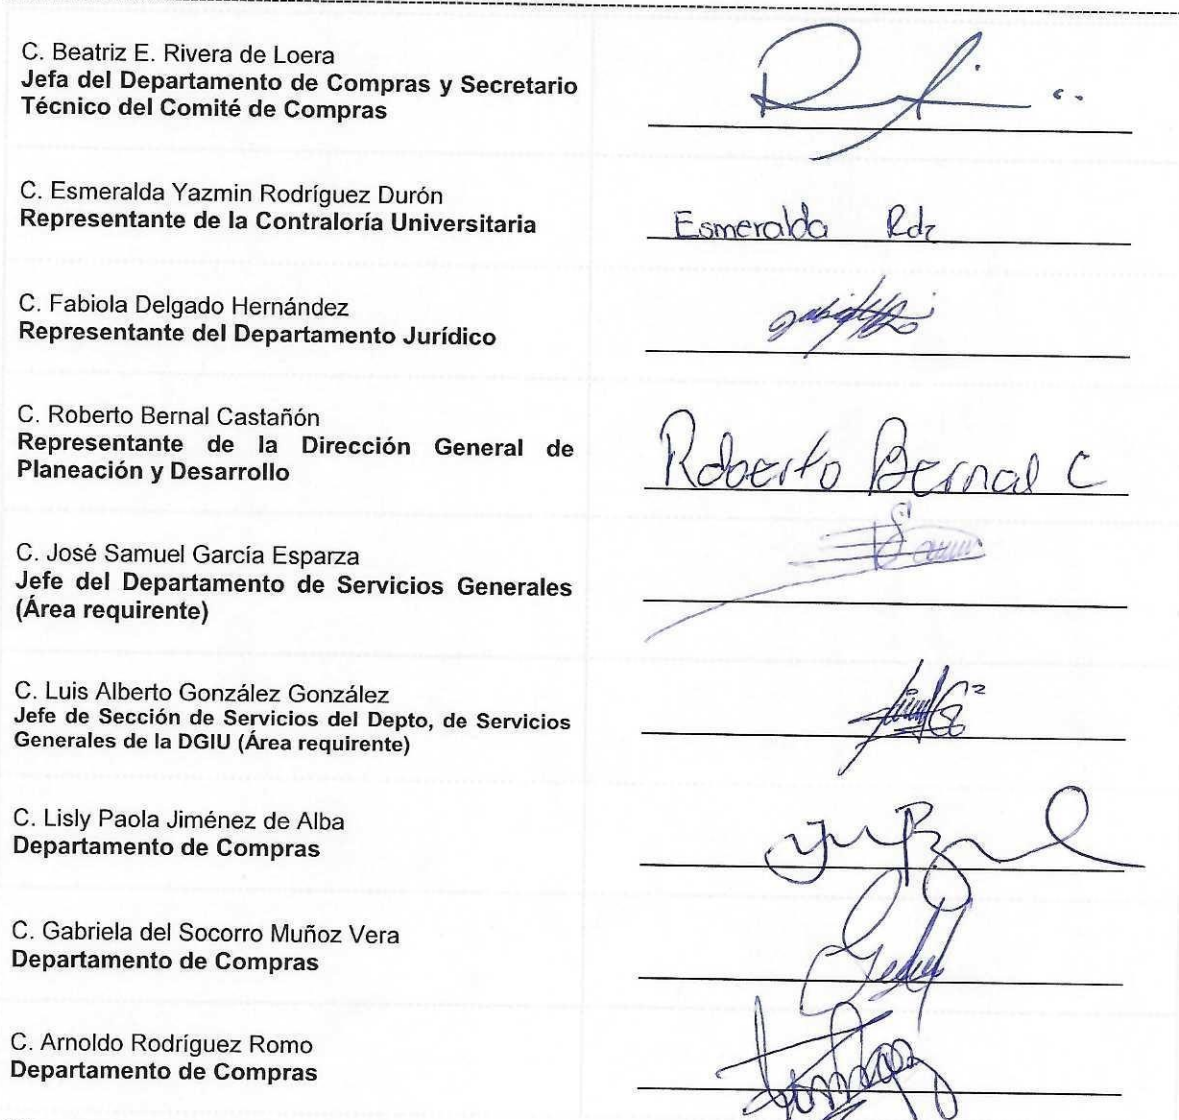 C. Beatriz E. Rivera de Loera
Jefa del Departamento de Compras y Secretario
Técnico del Comité de Compras
C. Esmeralda Yazmin Rodríguez Durón
Representante de la Contraloría Universitaria
Esmeralda Rdz
C. Fabiola Delgado Hernández
Representante del Departamento Jurídico
C. Roberto Bernal Castañón
Representante de la Dirección General de
Planeación y Desarrollo
Roberto Bernal C
C. José Samuel García Esparza
Jefe del Departamento de Servicios Generales
(Área requirente)
C. Luis Alberto González González
Jefe de Sección de Servicios del Depto, de Servicios
Generales de la DGIU (Área requirente)
C. Lisly Paola Jiménez de Alba
Departamento de Compras
C. Gabriela del Socorro Muñoz Vera
Departamento de Compras
C. Arnoldo Rodríguez Romo
Departamento de Compras